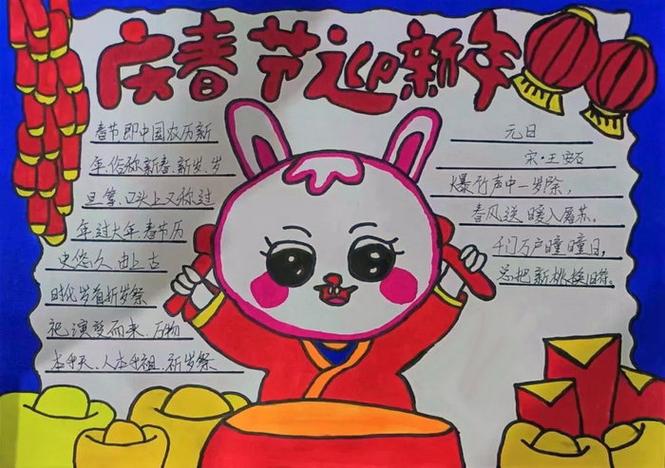 庆春节迎新年
春节即中国农历新
年,俗称新春、新岁、岁
旦等,口头上又称过
年、过大年、春节历
史悠久,由上古
时代岁首祈岁祭
祀演变而来.万物
本乎天、人本乎祖、祈岁祭
元日
宋·王安石
爆竹声中一岁除,
春风送暖入屠苏。
千门万户曈曈日,
总把新桃换旧符。